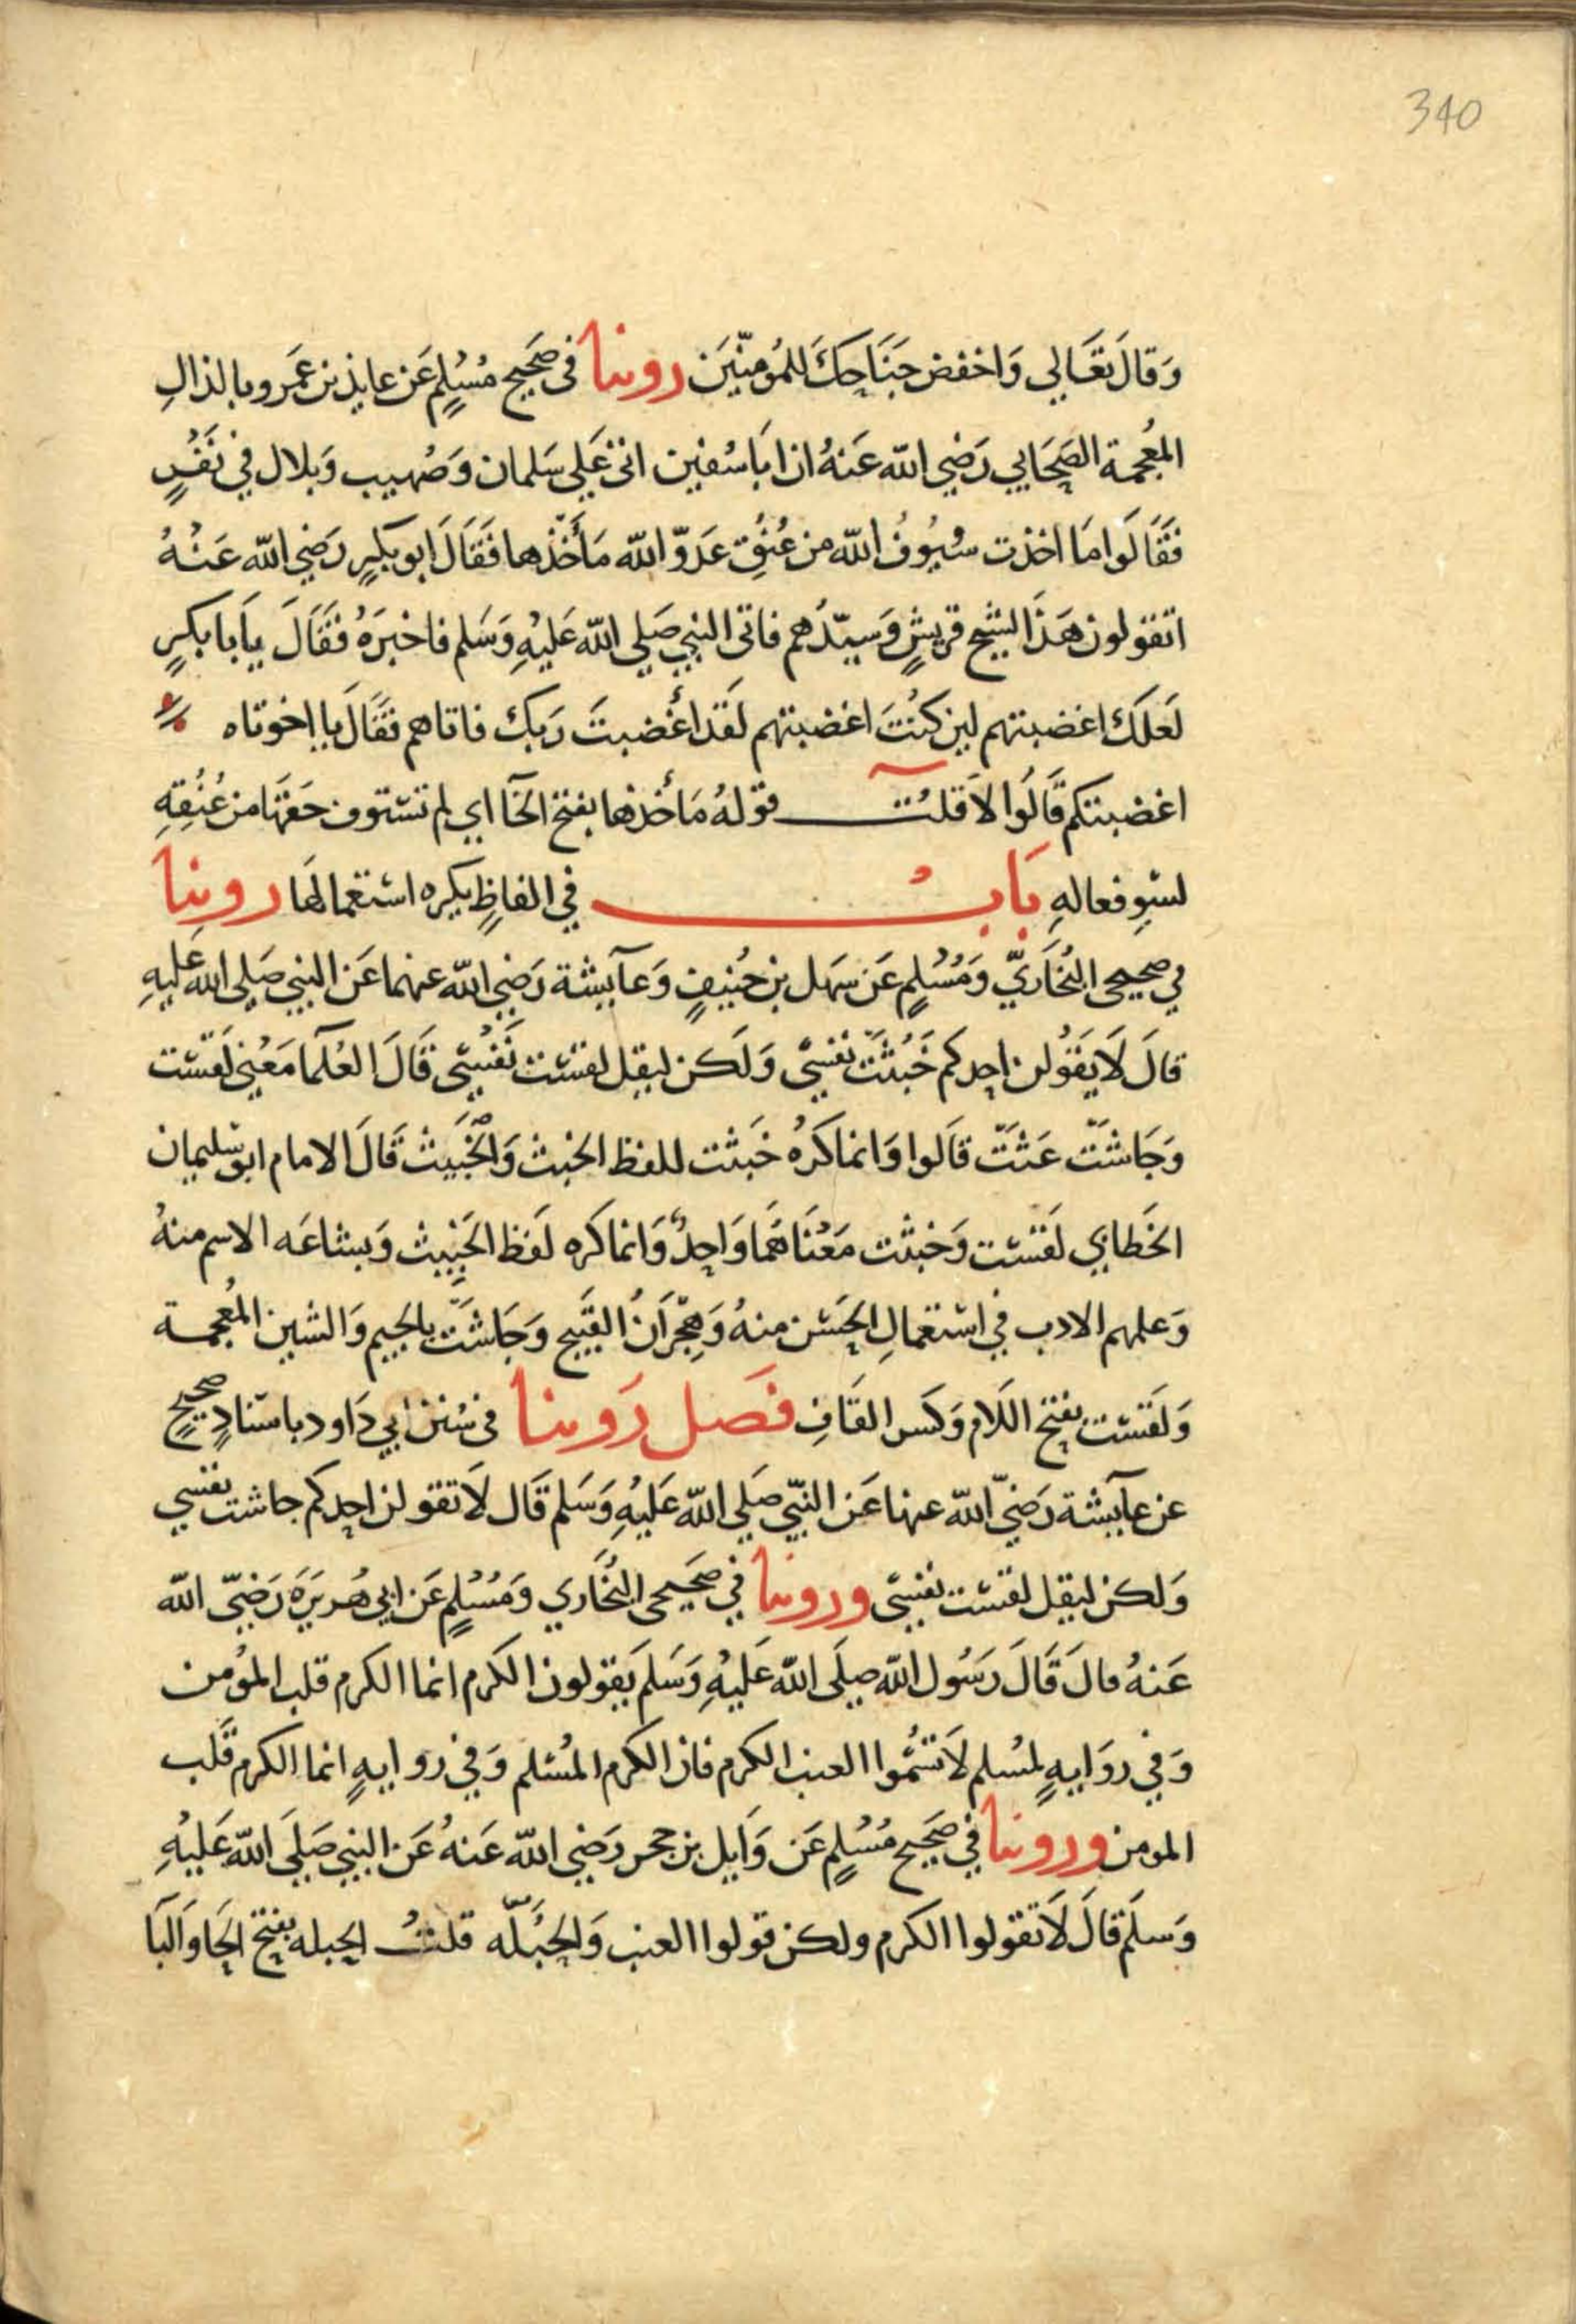 340
وَقالَ تعَالي وَاخفض جَنَاحكَ للمُؤمنيَن روينا في صَحَيح مُسْلمٍ عَن عايذ بن عَمرو بالذالِ
المُعجمة الصَحَابي رَضي الله عَنهُ ان ابَا سُفين اتى عَلي سَلمان وَصُهيب وَبلال في نَفَرٍ
فقَالوا مَا اخذت سُيُوفُ الله من عُنُقِ عَدوّ الله مَأخَذها فقَالَ ابو بكرٍ رَضي الله عَنْهُ
اتقولون هَذَا لشيخ قريشٍ وَسيّدهم فاتى النبي صَلي الله عَليْهِ وَسَلم فاخبرَهُ فقَالَ يأَبا بكرٍ
لعَلكَ اغضبتهم لين كنُتَ اغضبتهم لقَد أغضبتَ رَبك فاتاهم فقَالَ يا اخوتاه
اغضبتكم قَالوُا لا قلتُ قولهُ مَأخذها بفتح الخآ اي لم تستوف حَقهَا من عُنُقِهِ
لسوِ فعالهِ بَابُ في الفاظٍ يكره استعمالهَا روينا
في صحيحي البُخَاريّ وَمُسْلمٍ عَن سَهل بن حُنيفٍ وَعآيشة رَضي الله عنهما عَن النبي صَلي الله عَليهِ
قالَ لاَ يقَولُن احدكم خَبُثَتّ نفسي وَلكن ليقل لقست نَفْسي قالَ العُلمآ مَعْني لقَست
وَجَاشَتّ عَثَتّ قالوا وَانما كرُهَ خَبثت للفظ الخبث وَالخبَيث قالَ الامام ابو سليمان
الخَطابي لقَست وَخبثت مَعْنَاهَمَا وَاحدٌ وَانما كره لفَظ الخَبيث وَبشاعَه الاسم منهُ
وَعلمهم الادب في اسْتعمالِ الحَسن منهُ وَهجْرَانُ القبَيح وَجَاشَتّ بالجيم وَالشين المُعجمة
وَلقَست بفتح اللام وَكسر القافِ فصَل رَوينا في سُنن ابي دَاود باسنادٍ صحيحٍ
عن عآيشة رَضيّ الله عنها عَن النبّي صَلي الله عَليْهِ وَسَلم قالَ لاَ تقولن احدكم جاشت نفسي
وَلكن ليقل لقست نفسي وروينا في صَحيحي البُخَاري وَمُسْلمٍ عَن ابي هُريَرَة رَضيّ الله
عَنهُ مالَ قالَ رَسُول الله صَلي الله عَليْهِ وَسَلم يَقولون الكرم انما الكرم قلب المؤمن
وَفي روَايهٍ لمُسلم لاَ تسُّموا العنب الكرم فان الكرم المُسْلم وَفي روايهٍ انما الكرم قَلب
المومن وروينا في صَحَيح مُسْلمٍ عَن وَايل بن حجر رَضي الله عَنهُ عَن النبي صَليَ الله عَليْهِ
وَسلم قالَ لاَ تقولوا الكرم ولكن قولوا العنب وَالحَبَلّه قلتُ الحبله بفتح الحَا وَالبَا